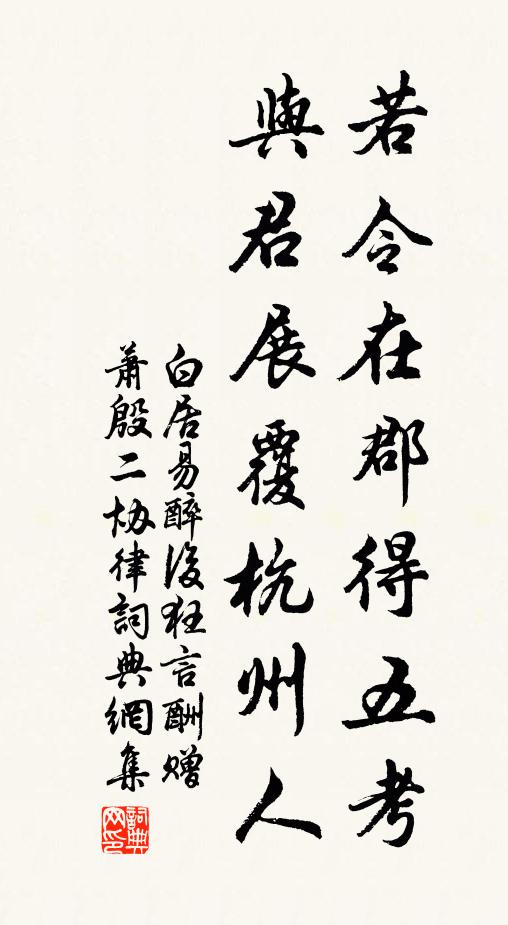 若令在郡得五考
與君展覆杭州人
白居易醉後狂言酬贈
蕭殷二協律詞典網集
詞典
网印